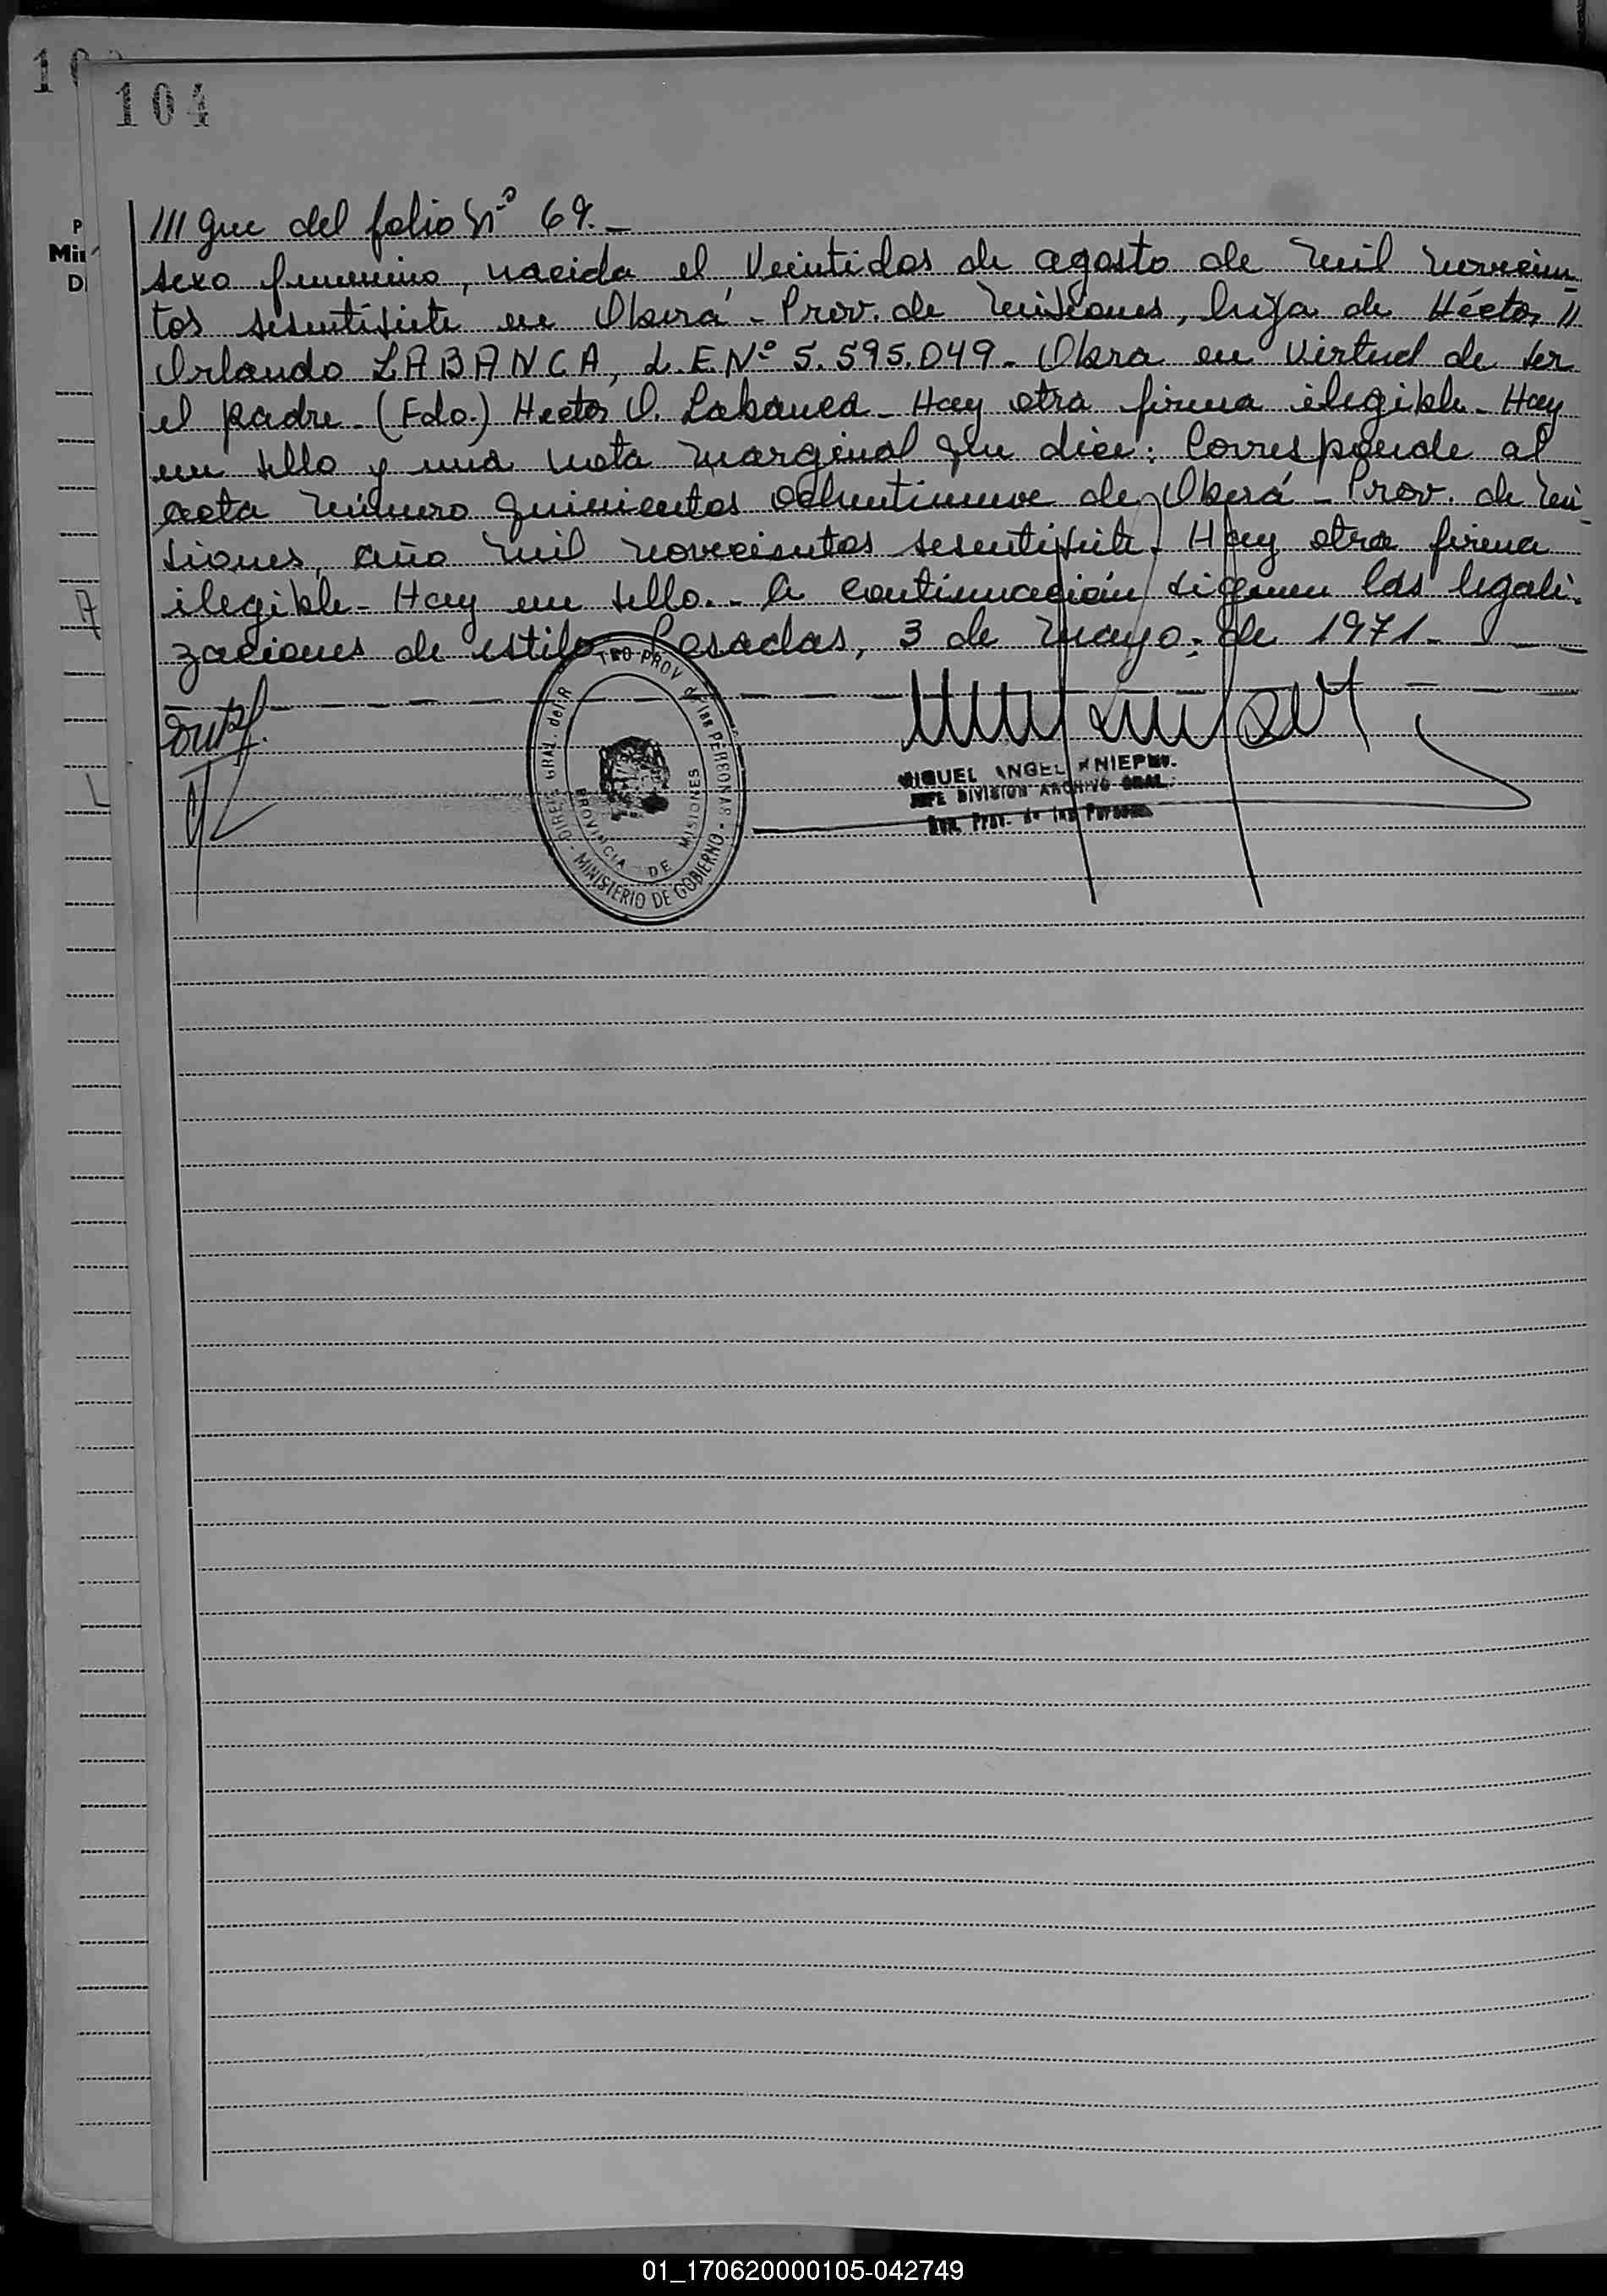 104
/// gue del folio Nº 69.-
sexo femenino, nacida el Veintidos de agosto de mil novecien-
tos sesentisiete en Oberá - Prov. de Misiones, hija de Héctor //
Orlando LABANCA, L.E.Nº 5.595.049 - Obra en virtud de ser
el padre - (Fdo.) Hector O. Labanca - Hay otra firma ilegible - Hay
un sello y una nota marginal que dice: Corresponde al
acta número quinientos ochentinueve de Oberá - Prov. de Mi-
siones, año mil novecientos sesentisiete - Hay otra firma
ilegible - Hay un sello. - A continuación siguen las legali-
zaciones de estilo - Posadas, 3 de mayo de 1971 -
DIREC. GRAL. del R TRO PROV de las PERSONAS - MINISTERIO DE GOBIERNO -
PROVINCIA DE MISIONES
MIGUEL ANGEL
JEFE DIVISION ARCHIVO GRAL.
Prov. de las Personas
01_170620000105-042749